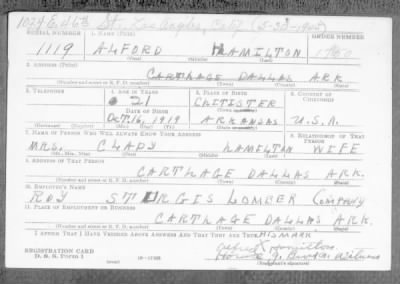 1024 E. 46th St. Los Angeles, Calif (5-22-1942)
SERIAL NUMBER 1. NAME (Print) ORDER NUMBER
1119 ALFORD HAMILTON 1750
(First) (Middle) (Last)
2. ADDRESS (Print)
CARTHAGE DALLAS ARK
(Number and street or R. F. D. number) (Town) (County) (State)
3. TELEPHONE 4. AGE IN YEARS 5. PLACE OF BIRTH 6. COUNTRY OF CITIZENSHIP
21
DATE OF BIRTH (Town or county)
OCT. 16, 1919 ARKANSAS U.S.A.
(Exchange) (No.) (Mo.) (Day) (Yr.) (State or country)
7. NAME OF PERSON WHO WILL ALWAYS KNOW YOUR ADDRESS 8. RELATIONSHIP OF THAT PERSON
MRS. CLADY HAMILTON WIFE
(Mr., Mrs., Miss) (First) (Middle) (Last)
9. ADDRESS OF THAT PERSON
CARTHAGE DALLAS ARK.
(Number and street or R. F. D. number) (Town) (County) (State)
10. EMPLOYER'S NAME
ROY STURGIS LOMBER Company
11. PLACE OF EMPLOYMENT OR BUSINESS
CARTHAGE DALLAS ARK.
(Number and street or R. F. D. number) (Town) (County) (State)
I AFFIRM THAT I HAVE VERIFIED ABOVE ANSWERS AND THAT THEY ARE TRUE. HIS MARK
Alford X Hamilton
REGISTRATION CARD
D. S. S. Form 1 Witness
(Registrant's signature)